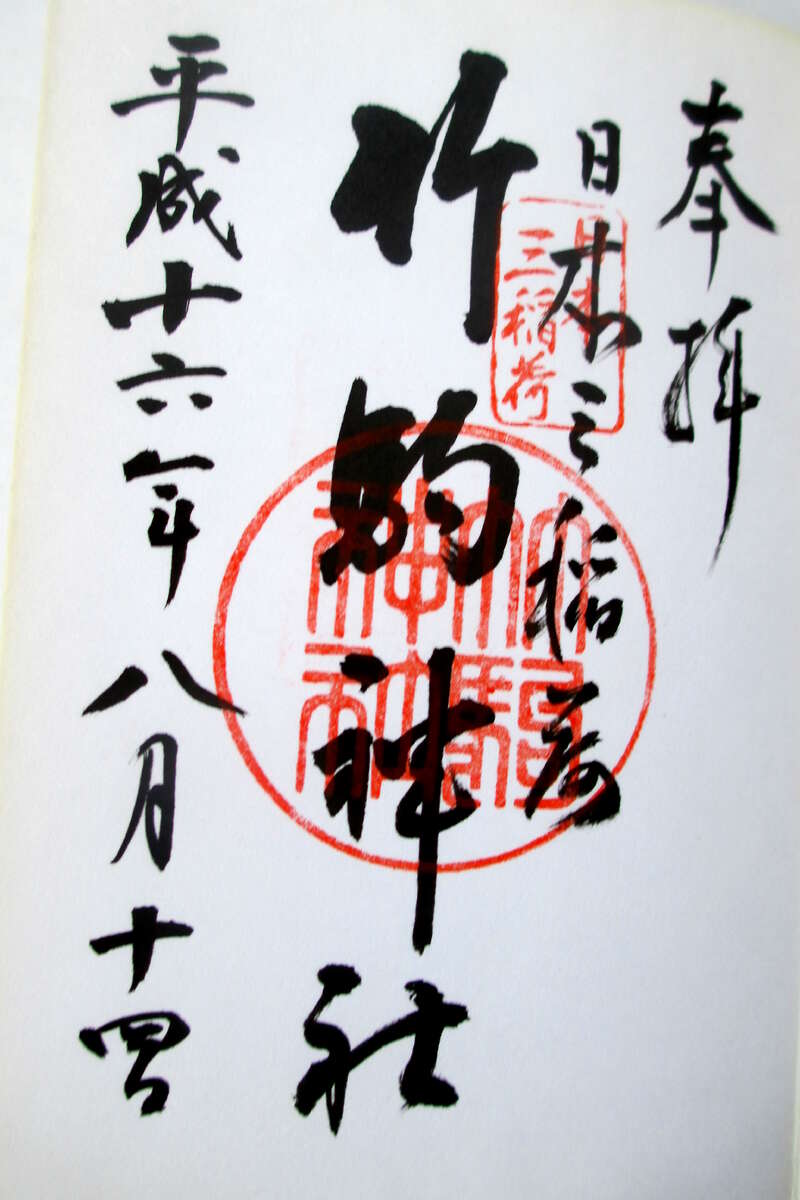 奉拝
日本三稲荷
日本
三稲荷
竹駒神社
竹駒
神社
平成十六年八月十四日